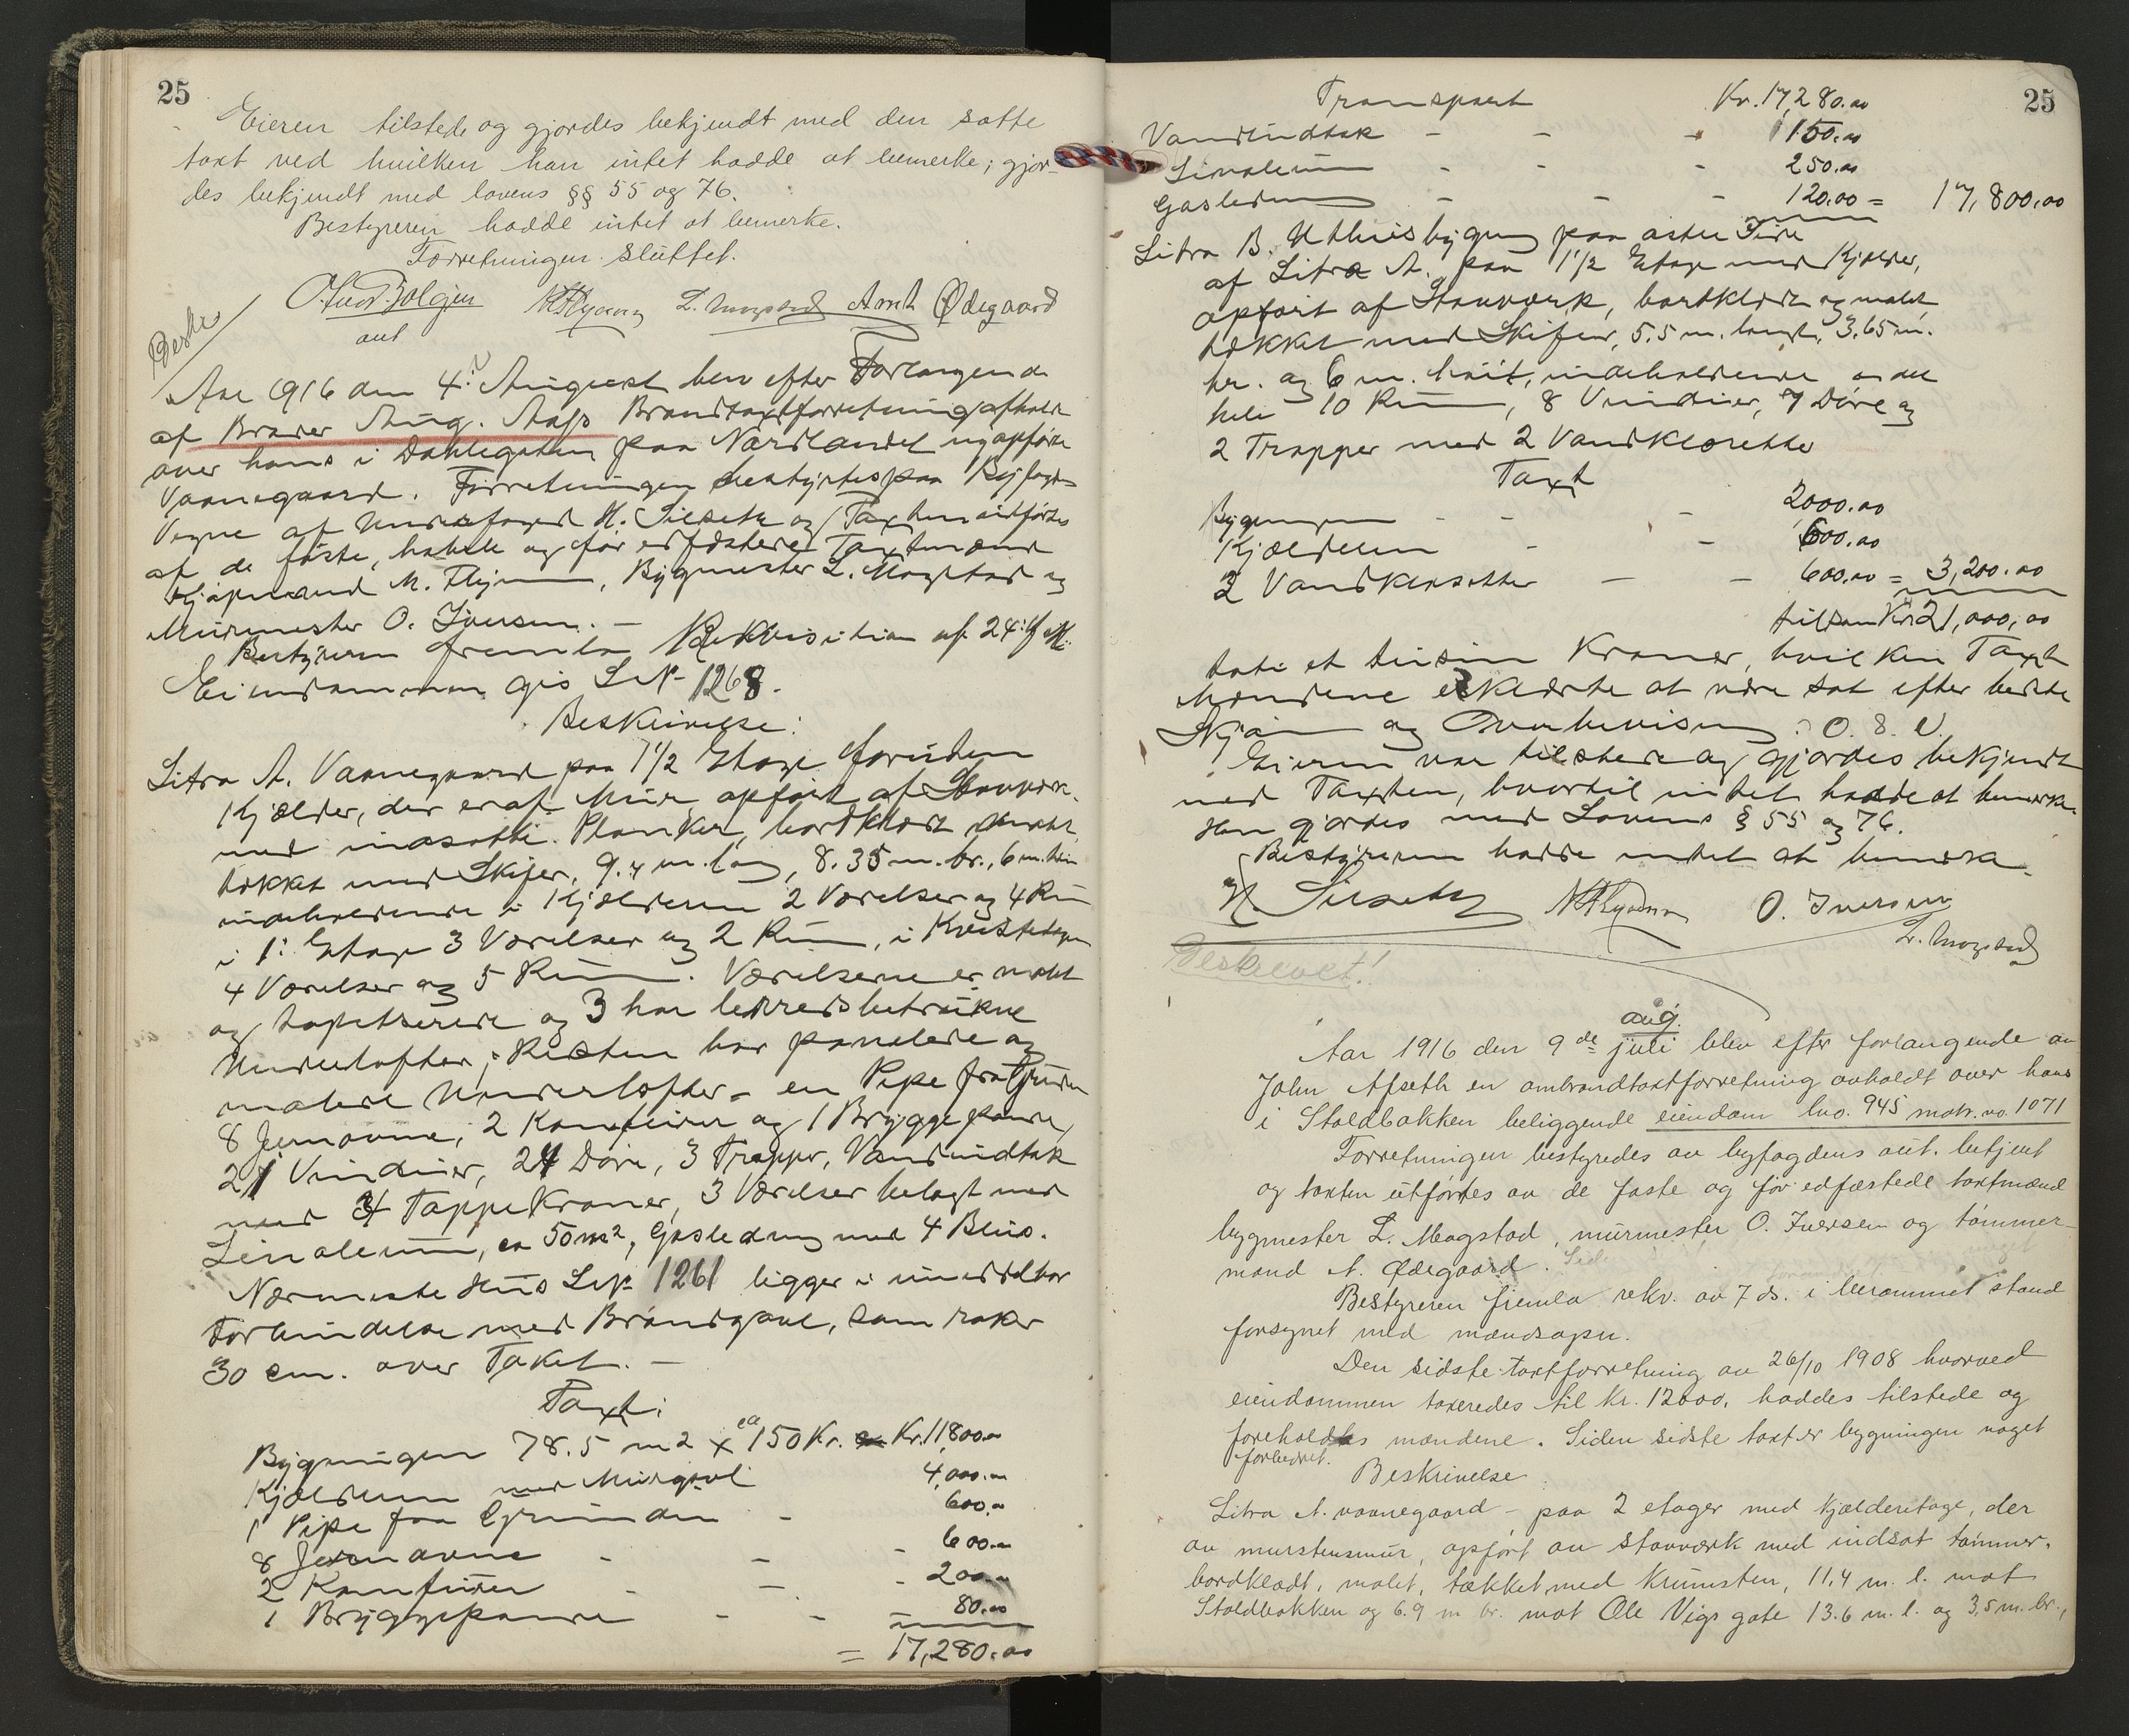 25
Eieren tilstede og gjordes bekjendt med den satte
taxt ved hvilken han intet hadde at bemerke; gjor-
des bekjendt med lovens §§ 55 og 76.
Bestyreren hadde intet at bemerke.
Forretningen sluttet.
L. Magstad Arnt Ødegaard
aut
Aar 1916 den 4. August blev efter Forlangende
af Brører Aug. Brandtaxtforretning afholdt
over hans i Dahlegaten paa Nordlandet nyopførte
Vaanegaard. Forretningen bestyrtes paa Byfogd-
Vegne af H. Silseth og Taxten utførtes
af de faste, og før edfæstede Taxtmænd
Kjøpmand M. Flyum, Bygmester L. Magstad og
Murmester O. Iversen. —
Bestyreren fremla Rekvisition af 24.
Eiendommen gis LN 1268.
Beskrivelse:
Litra A. Vaanegaard paa 1 1/2 Etage foruden
Kjælder, der er af Mur, opført af Stavværk
med indsatte Planker, bordklædt malet
tækket med Skifer, 9.4 m. lang, 8.35 m. br., 6 m. høi
indeholdende i Kjælderen 2 Værelser og 4 Rum
i 1. Etage 3 Værelser og 2 Rum, i Kvistetagen
4 Værelser og 5 Rum. Værelserne er malt
og tapetserede og 3 har lerredsbetrukne
Underlofter; Resten har panelede og
malede Underlofter - en Pipe fra Grunden
8 Jernovne, 2 Komfurer og 1 Bryggepande,
21 Vinduer, 24 Døre, 3 Trapper, Vandindtak
med Tappekraner, 3 Værelser belagt med
Linoleum, ca 50 m2, Gasledning med 4 Blus.
Nærmeste Hus LN 1261 ligger i umiddelbar
Forbindelse med Brandgavl, som raker
30 cm. over Taket. —
Taxt:
Bygningen 78.5 m2 x ca 150 Kr. Kr. 11,800.00
Kjælderen med Murgavl 4,000.00
1 Pipe fra Grunden - 600.00
8 Jernovne - - - 600.00
2 Komfurer - - - 200.00
1 Bryggepande - - 80.00
= 17,280.00
25
Transport Kr. 17,280.00
Vandindtak - - - 150.00
Linoleum - - 250.00
Gasledning - - 120.00 = 17,800.00
Litra B. Uthusbygning paa østre Side
af Litra A. paa 1 1/2 Etage med Kjælder,
opført af Stavværk, bordklædt og malet,
tækket med Skifer, 5.5 m. langt, 3.65 m.
br. og 6 m. høit, indeholdende i det
hele 10 Rum, 8 Vinduer, 7 Døre og
2 Trapper med 2 Vandklosetter
Taxt
Bygningen - - - 2000.00
Kjælderen - - 600.00
2 Vandklosetter — — 600.00 = 3,200.00
tilsam Kr. 21,000,00
toti et tusin Kroner, hvilken Taxt
Mændene erklærte at være sat efter bedste
Skjøn og Overbevisning. O. 8. V.
Eieren var tilstede og gjordes bekjendt
med Taxten, hvortil intet hadde at bemerke.
Han gjordes med Lovens § 55 og 76.
Bestyreren hadde intet at bemerke.
H. Silseth O. Iversen
L. Magstad
Beskrevet!
aug.
Aar 1916 den 9de juli blev efter forlangende av
John Afseth en ombrandtaxtforretning avholdt over hans
i Stoldbakken beliggende eiendom lno. 945 matr. no. 1071
Forretningen bestyredes av byfogdens aut. betjent
og taxten utførtes av de faste og før edfæstede taxtmænd
bygmester L. Magstad, murmester O. Iversen og tømmer-
mand A. Ødegaard.
Bestyreren fremla rekv. av 7 ds. i berammet stand
forsynet med mændsopn.
Den sidste taxtforretning av 26/10 1908 hvorved
eiendommen taxeredes til kr. 12000, haddes tilstede og
foreholdtes mændene. Siden sidste taxt er bygningen noget
forbedret.
Beskrivelse:
Litra A. vaanegaard - paa 2 etager med kjælderetage, der
av murstensmur, opført av stavværk med indsat tømmer,
bordklædt, malet, tækket med krumsten, 11,4 m. l. mot
Stoldbakken og 6.9 m br. mot Ole Vigs gate 13.6 m. l. og 3,5 m. br.,